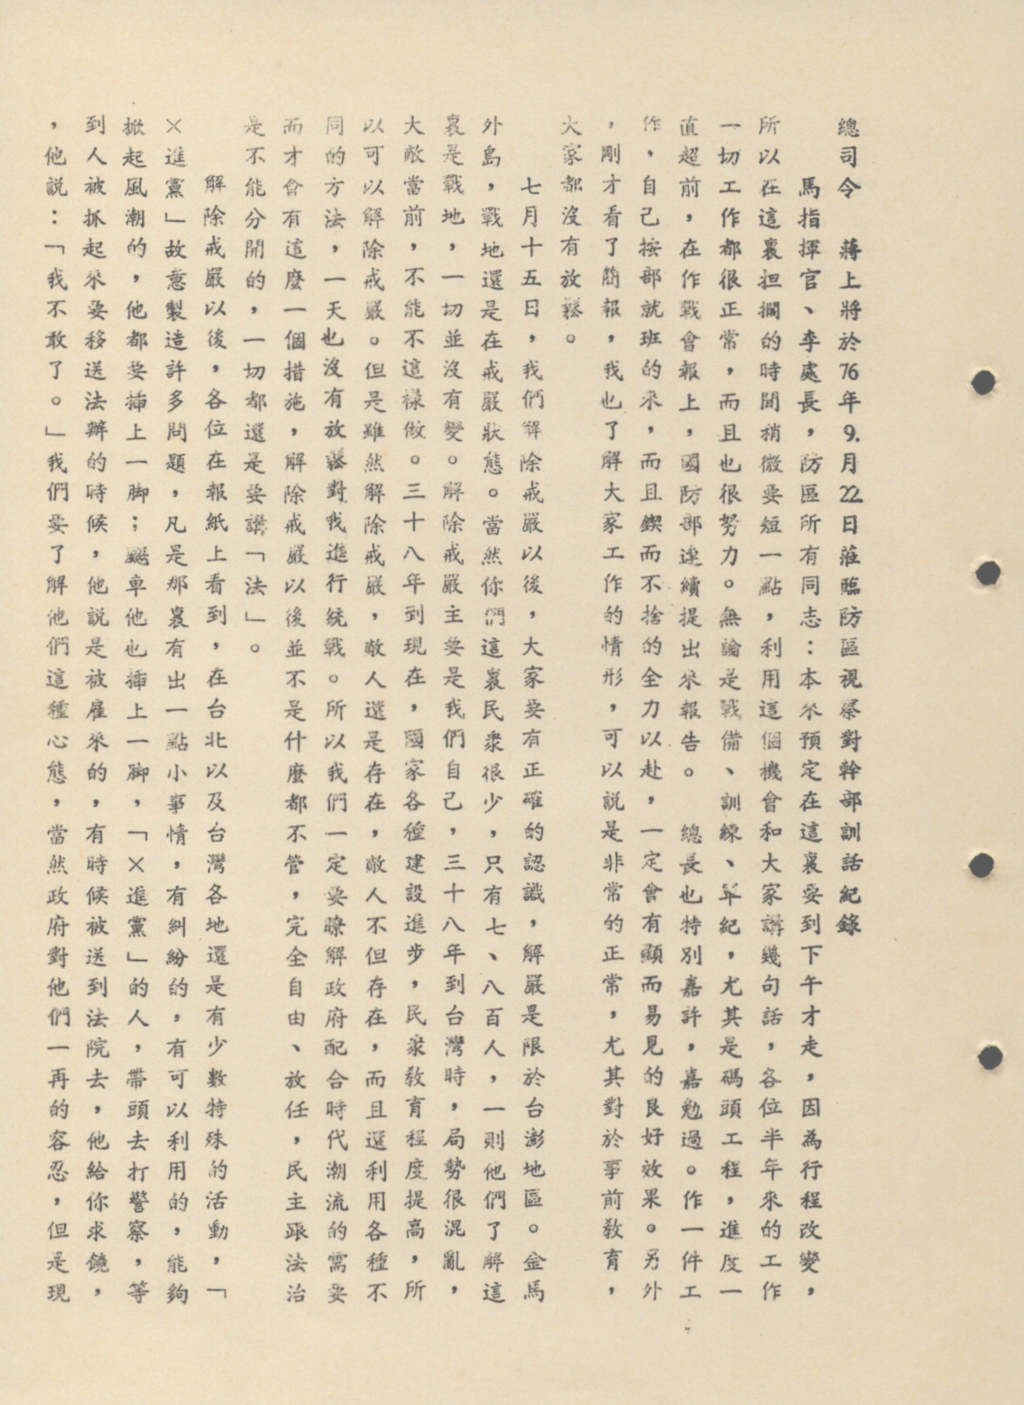 總司令　蔣上將於76年9.月22.日莊臨防區視察對幹部訓話紀錄
馬指揮官、李處長，防區所有同志：本來預定在這裏要到下午才走，因為行程改變，
所以在這裏担擱的時間稍微要短一點，利用這個機會和大家講幾句話，各位半年來的工作
一切工作都很正常，而且也很努力。無論是戰備、訓練、軍紀，尤其是碼頭工程，進度一
直超前，在作戰會報上，國防部連續提出來報告。　總長也特別嘉許，嘉勉過。作一件工
作，自己按部就班的來，而且鍥而不捨的全力以赴，一定會有顯而易見的良好效果。另外
，剛才看了簡報，我也了解大家工作的情形，可以說是非常的正常，尤其對於事前教育，
大家都沒有放鬆。
七月十五日，我們解除戒嚴以後，大家要有正確的認識，解嚴是限於台澎地區。金馬
外島，戰地還是在戒嚴狀態。當然你們這裏民衆很少，只有七、八百人，一則他們了解這
裏是戰地，一切並沒有變。解除戒嚴主要是我們自己，三十八年到台灣時，局勢很混亂，
大敵當前，不能不這樣做。三十八年到現在，國家各種建設進步，民衆教育程度提高，所
以可以解除戒嚴。但是雖然解除戒嚴，敵人還是存在，敵人不但存在，而且還利用各種不
同的方法，一天也沒有放鬆對我進行統戰。所以我們一定要瞭解政府配合時代潮流的需要
而才會有這麼一個措施，解除戒嚴以後並不是什麼都不管，完全自由、放任，民主跟法治
是不能分開的，一切都還是要講「法」。
解除戒嚴以後，各位在報紙上看到，在台北以及台灣各地還是有少數特殊的活動，「
×進黨」故意製造許多問題，凡是那裏有出一點小事情，有糾紛的，有可以利用的，能夠
掀起風潮的，他都要揷上一脚；飈車他也揷上一脚，「×進黨」的人，帶頭去打警察，等
到人被抓起來要移送法辦的時候，他說是被雇來的，有時候被送到法院去，他給你求饒，
，他說：「我不敢了。」我們要了解他們這種心態，當然政府對他們一再的容忍，但是現